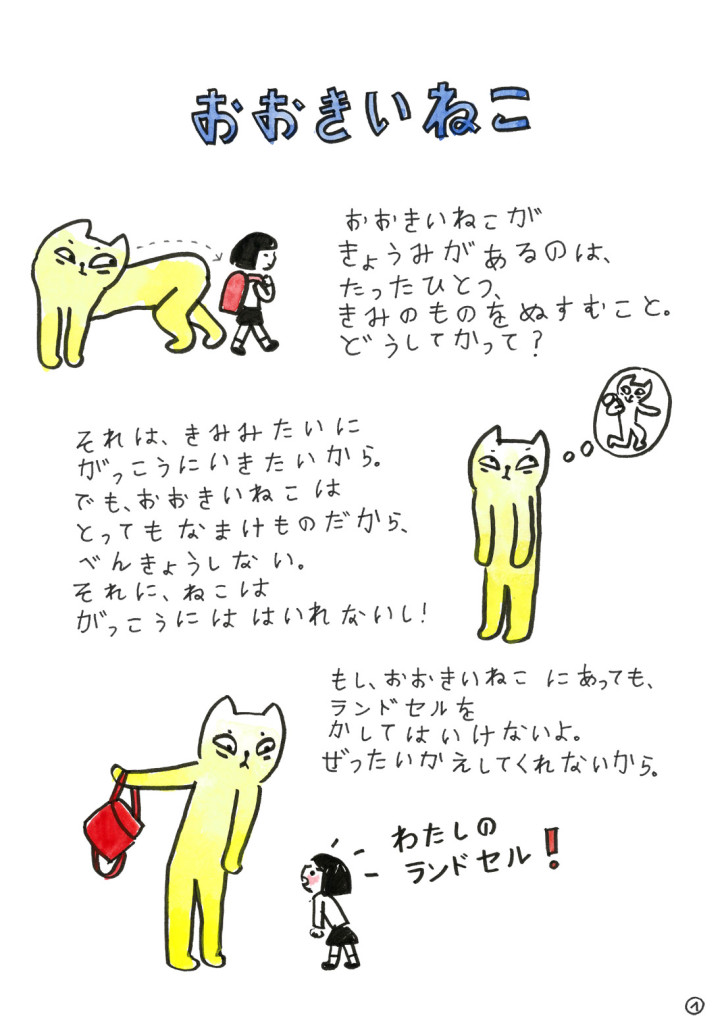 おおきいねこ
おおきいねこが
きょうみがあるのは、
たったひとつ、
きみのものをぬすむこと。
どうしてかって？
それは、きみみたいに
がっこうにいきたいから。
でも、おおきいねこは
とってもなまけものだから、
べんきょうしない。
それに、ねこは
がっこうには はいれないし！
もし、おおきいねこ にあっても、
ランドセルを
かしてはいけないよ。
ぜったいかえしてくれないから。
わたしの
ランドセル！
1